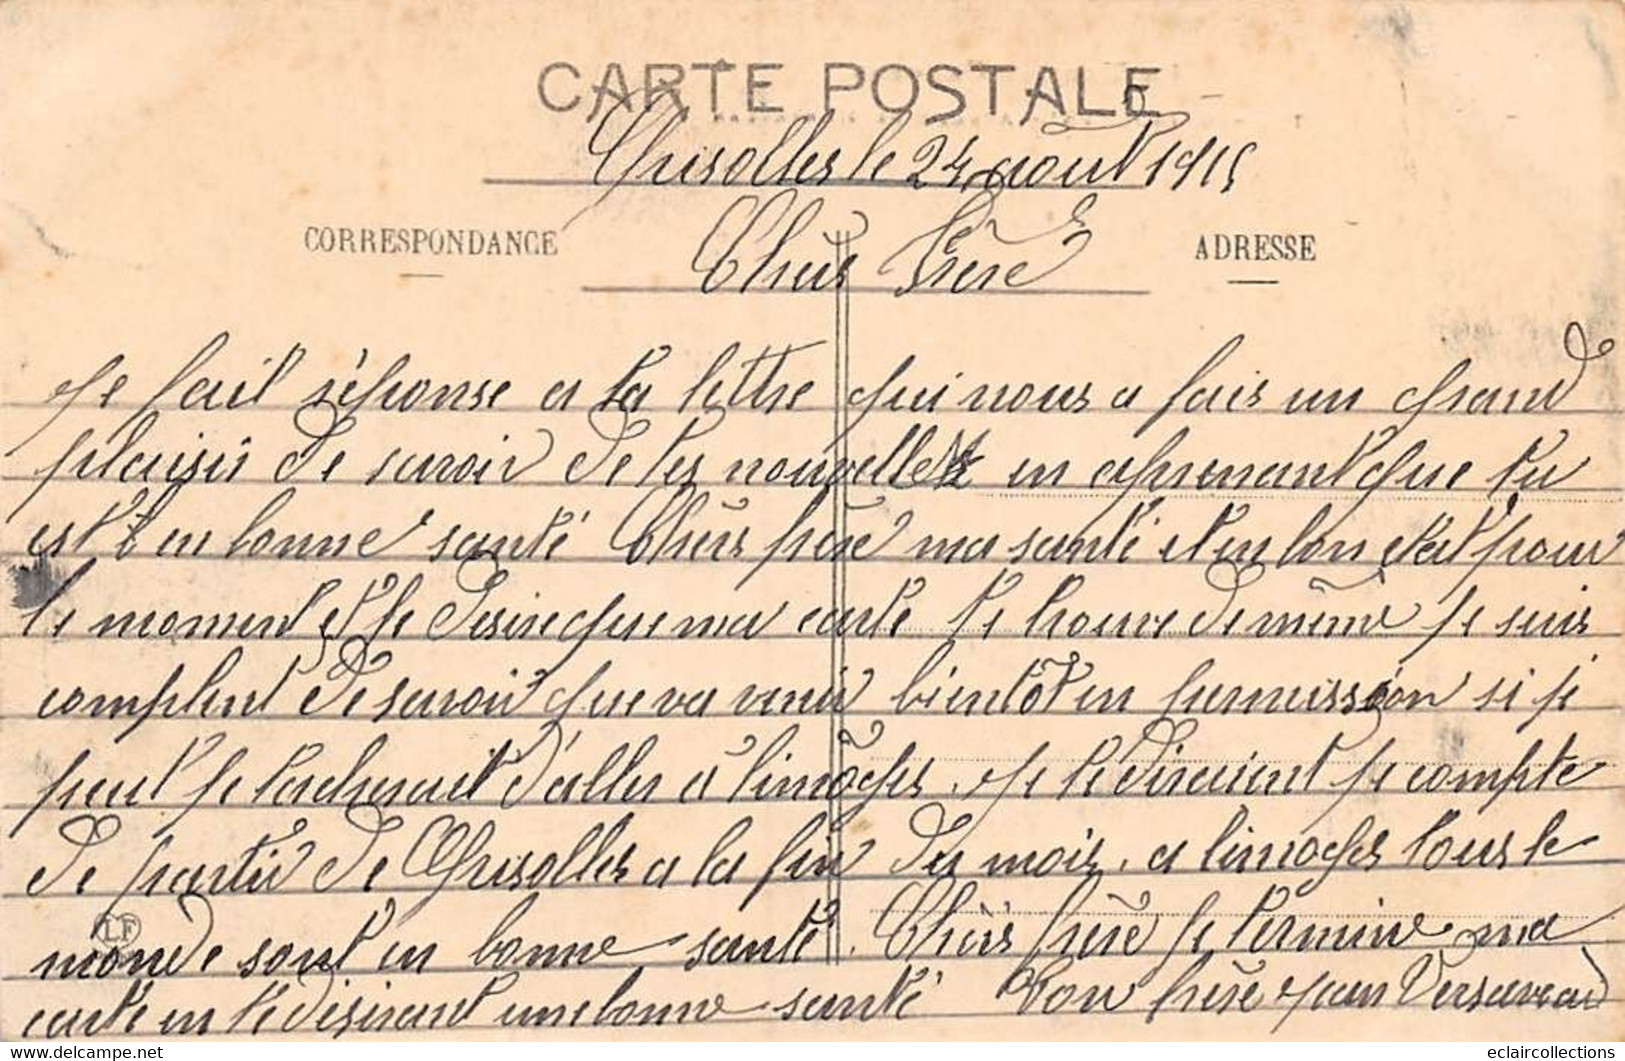 CARTE POSTALE
Grisolles le 24 août 1915
CORRESPONDANCE
ADRESSE
Chèrs frère
Je fait réponse a ta lettre qui nous a fais un grand
plaisir de savoir de tes nouvelles en aprenant que tu
est en bonne santé Chèrs frère ma santé et en bon état pour
le moment et je desire que ma carte te trouve de même je suis
complent de savoir que va venir bientôt en permission si je
peut je tacherait d'aller a limôges. Je te diraient je compte
de partir de Grisolles a la fin du mois. a limoges tous le
monde sont en bonne santé. Chèrs frère je termine ma
carte en te désirant une bonne santé Ton frère Jean Versaveaud
LF
eclaircollections
www.delcampe.net